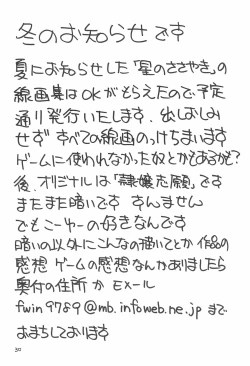 冬のお知らせです
夏にお知らせした「星のささやき」の
線画集はOKがもらえたので予定
通り発行いたします、出しおしみ
せず すべての線画のっけちまいます
ゲームに使われなかった奴とかもあるかな?
後、オリジナルは「隷嬢志願」です
またまた暗いです すんません
でもこーゆーの好きなんです
暗いの以外にこんなの描いてとか 作品の
感想 ゲームの感想なんかありましたら
奥付の住所 か Eメール
fwin9789@mb.infoweb.ne.jp まで
おまちしております
30